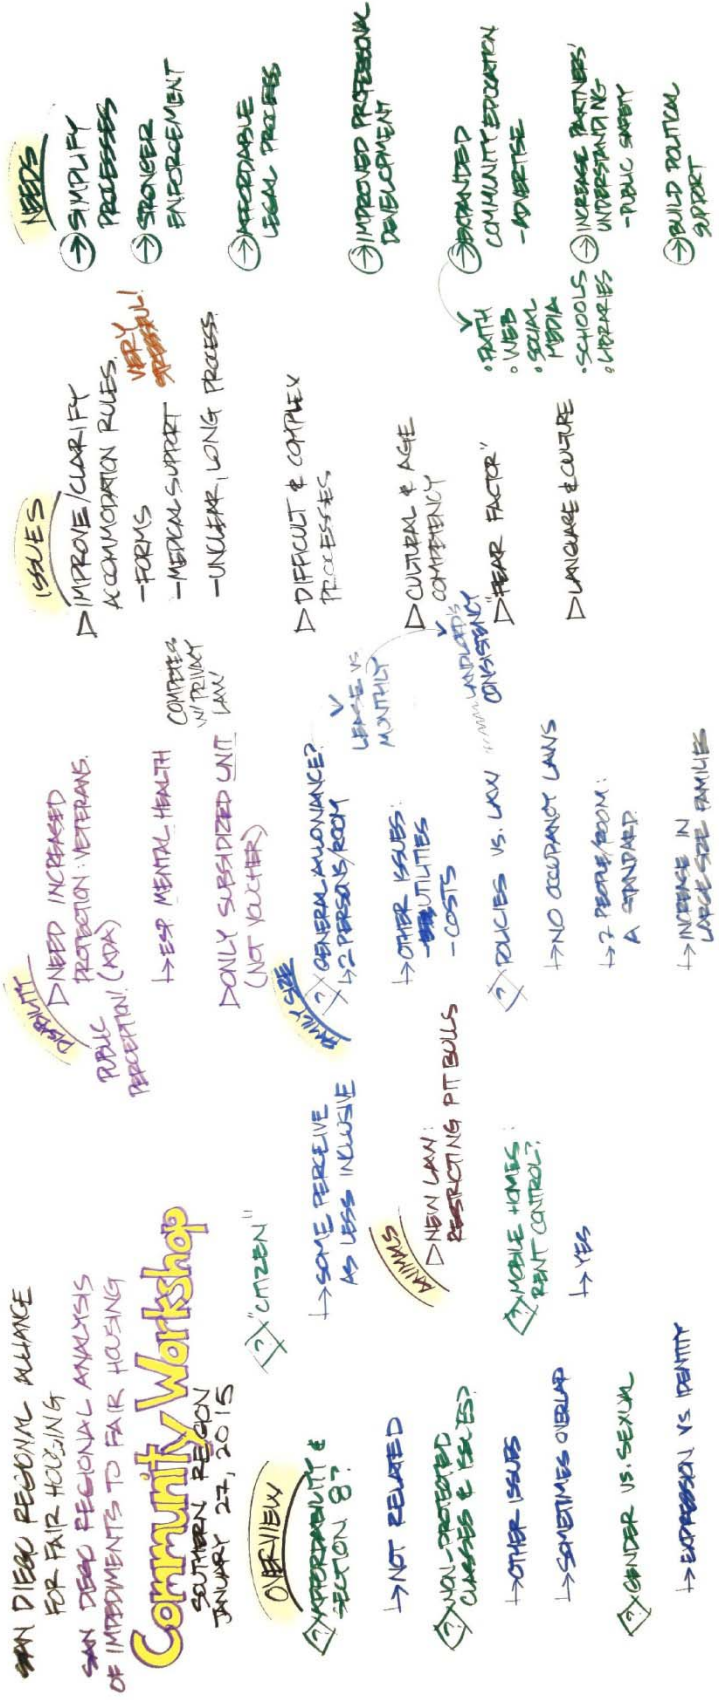 SAN DIEGO REGIONAL ALLIANCE
FOR FAIR HOUSING
SAN DIEGO REGIONAL ANALYSIS
OF IMPEDIMENTS TO FAIR HOUSING
Community Workshop
SOUTHERN REGION
JANUARY 27, 2015
OVERVIEW
? AFFORDABILITY &
SECTION 8?
↳ NOT RELATED
? NON-PROTECTED
CLASSES & ISSUES?
↳ OTHER ISSUES
↳ SOMETIMES OVERLAP
? GENDER VS. SEXUAL
↳ EXPRESSION VS IDENTITY
? "CITIZEN"
↳ SOME PERCEIVE
AS LESS INCLUSIVE
ANIMALS
▷ NEW LAW:
RESTRICTING PIT BULLS
? MOBILE HOMES:
RENT CONTROL?
↳ YES
DISABILITY
▷ NEED INCREASED
PROTECTION: VETERANS.
PUBLIC
PERCEPTION! (ADA)
↳ ESP. MENTAL HEALTH
COMPETES
W/ PRIVACY
LAW
▷ ONLY SUBSIDIZED UNIT
(NOT VOUCHER)
FAMILY SIZE
? GENERAL ALLOWANCE?
↳ 2 PERSONS/ROOM
LEASE VS
MONTHLY
↳ OTHER ISSUES:
- UTILITIES
- COSTS
? POLICIES VS. LAW
LANDLORD'S
CONSISTENCY
↳ NO OCCUPANCY LAWS
↳ 2 PEOPLE/ROOM:
A STANDARD.
↳ INCREASE IN
LARGE SIZE FAMILIES
ISSUES
▷ IMPROVE/CLARIFY
ACCOMMODATION RULES.
- FORMS
VERY
STRESSFUL!
- MEDICAL SUPPORT
- UNCLEAR, LONG PROCESS.
▷ DIFFICULT & COMPLEX
PROCESSES
▷ CULTURAL & AGE
COMPETENCY
▷ "FEAR FACTOR"
▷ LANGUAGE & CULTURE
NEEDS
→ SIMPLIFY
PROCESSES
→ STRONGER
ENFORCEMENT
→ AFFORDABLE
LEGAL PROCESS
→ IMPROVED PROFESSIONAL
DEVELOPMENT
→ EXPANDED
COMMUNITY EDUCATION
- ADVERTISE
• FAITH
• WEB
• SOCIAL
MEDIA
• SCHOOLS
• LIBRARIES
→ INCREASE PARTNERS'
UNDERSTANDING
- PUBLIC SAFETY
→ BUILD POLITICAL
SUPPORT